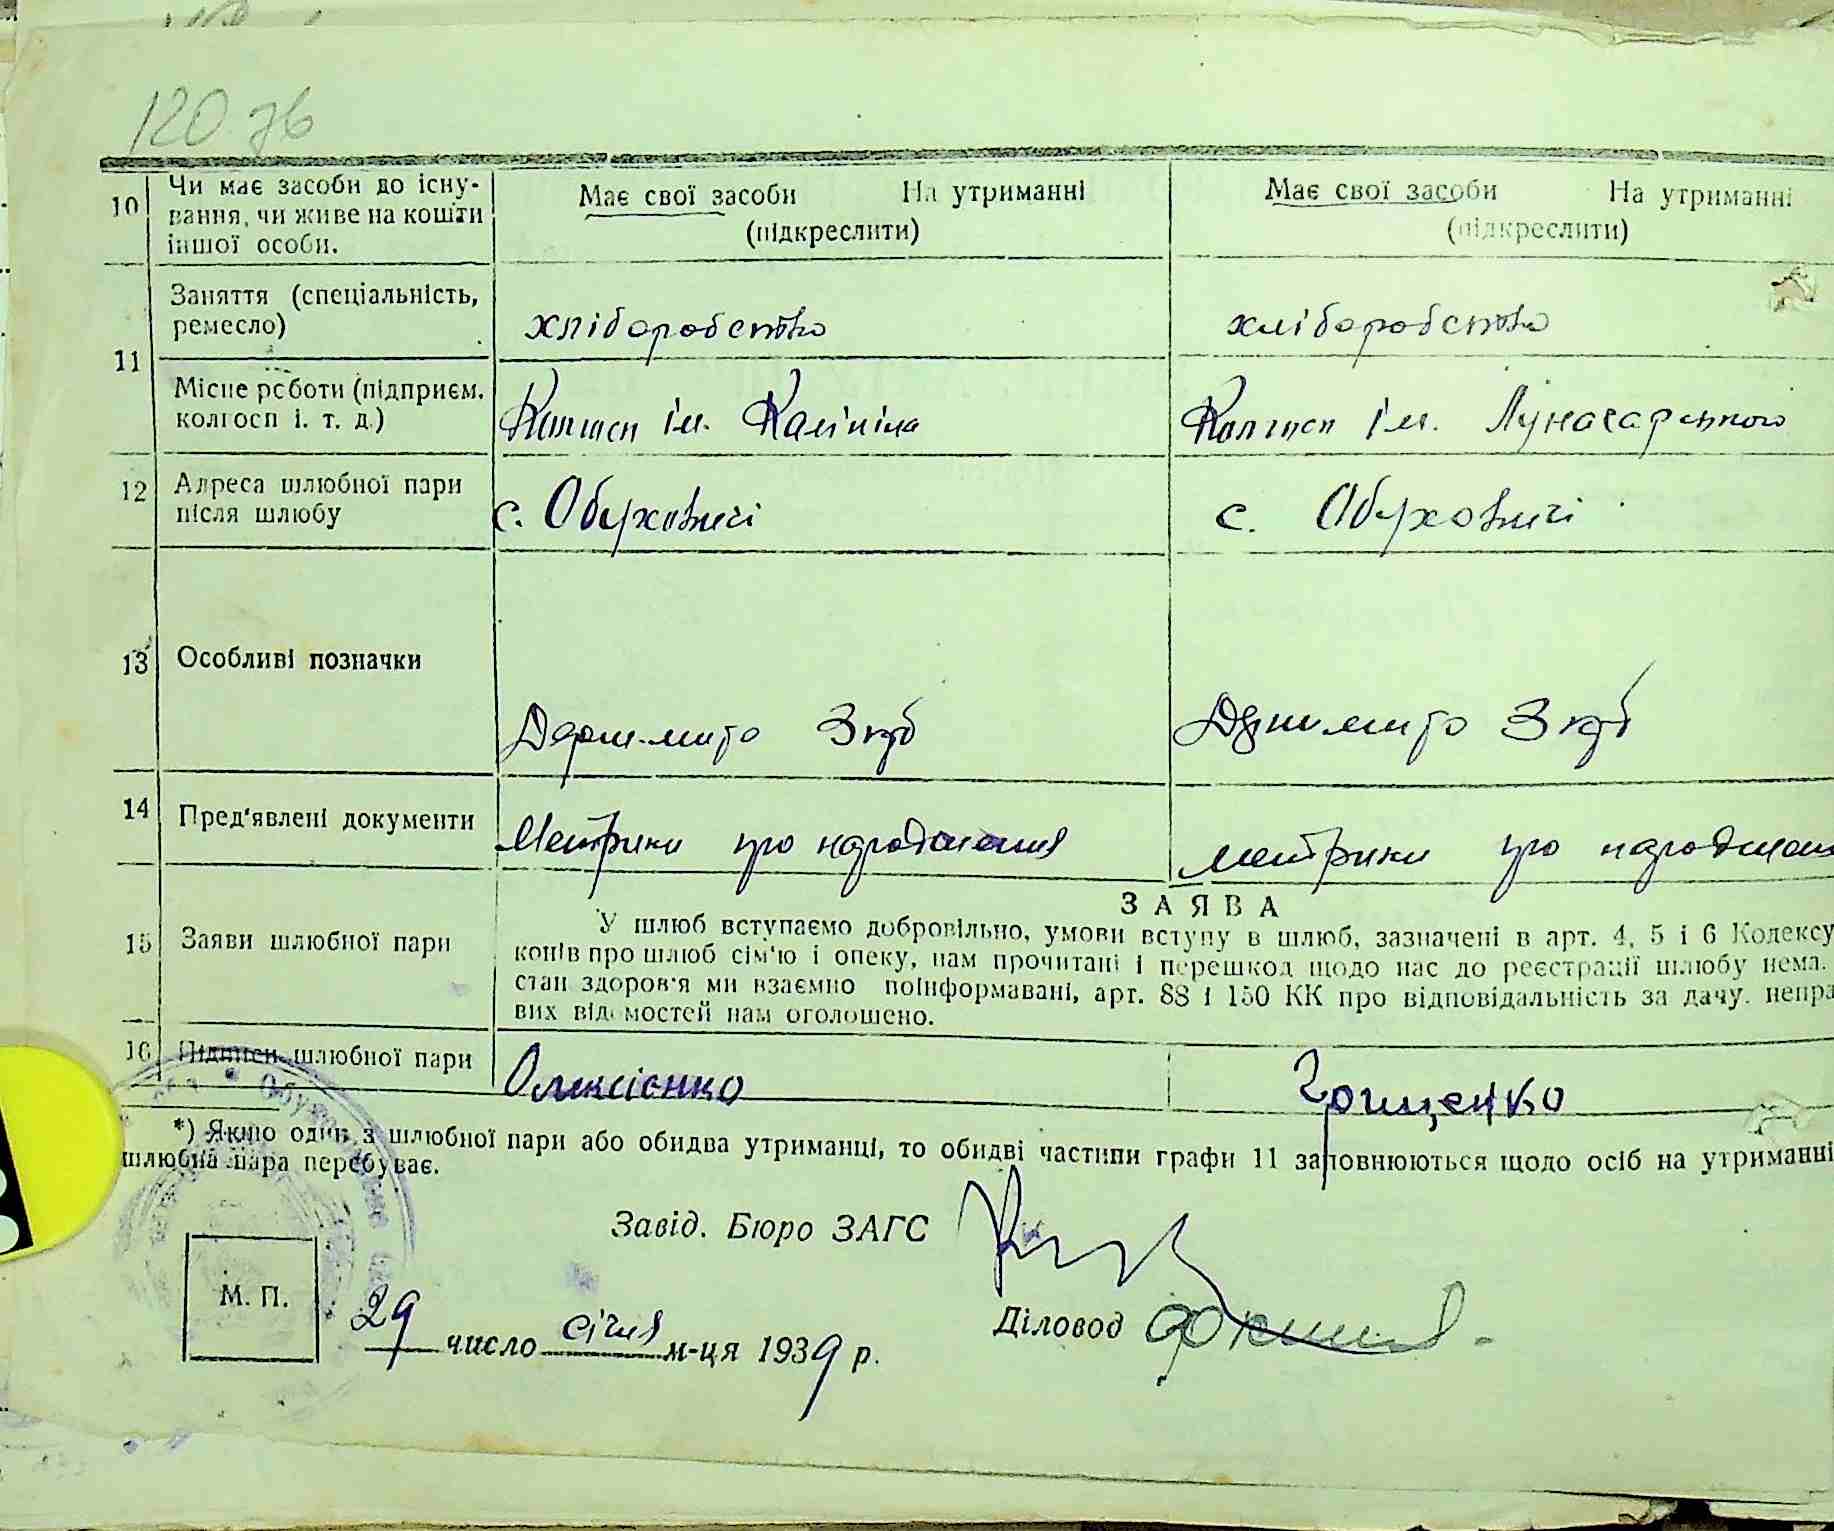 120 зв
10 Чи має засоби до існу- Має свої засоби На утриманні Має свої засоби На утриманні
вання, чи живе на кошти (підкреслити) (підкреслити)
іншої особи.
11 Заняття (спеціальність, хліборобство хліборобство
ремесло)
Місце роботи (підприєм. Колгосп ім. Калініна Колгосп ім. Луначарського
колгосп і. т. д.)
12 Адреса шлюбної пари с. Обуховичі с. Обуховичі
після шлюбу
13 Особливі позначки
Держ.мито 3 крб Держмито 3 крб
14 Пред'явлені документи Метрики про народження метрики про народжен
ЗАЯВА
15 Заяви шлюбної пари У шлюб вступаємо добровільно, умови вступу в шлюб, зазначені в арт. 4, 5 і 6 Кодексу
конів про шлюб сім'ю і опеку, нам прочитані і перешкод щодо нас до реєстрації шлюбу нема.
стан здоров'я ми взаємно поінформавані, арт. 88 і 150 КК про відповідальність за дачу. непра
вих відомостей нам оголошено.
16 Підписи шлюбної пари Олексієнко Грищенко
*) Якщо один з шлюбної пари або обидва утриманці, то обидві частини графи 11 заповнюються щодо осіб на утриманні
шлюбна пара перебуває.
Завід. Бюро ЗАГС
М. П.
Діловод
29 число січня м-ця 1939 р.